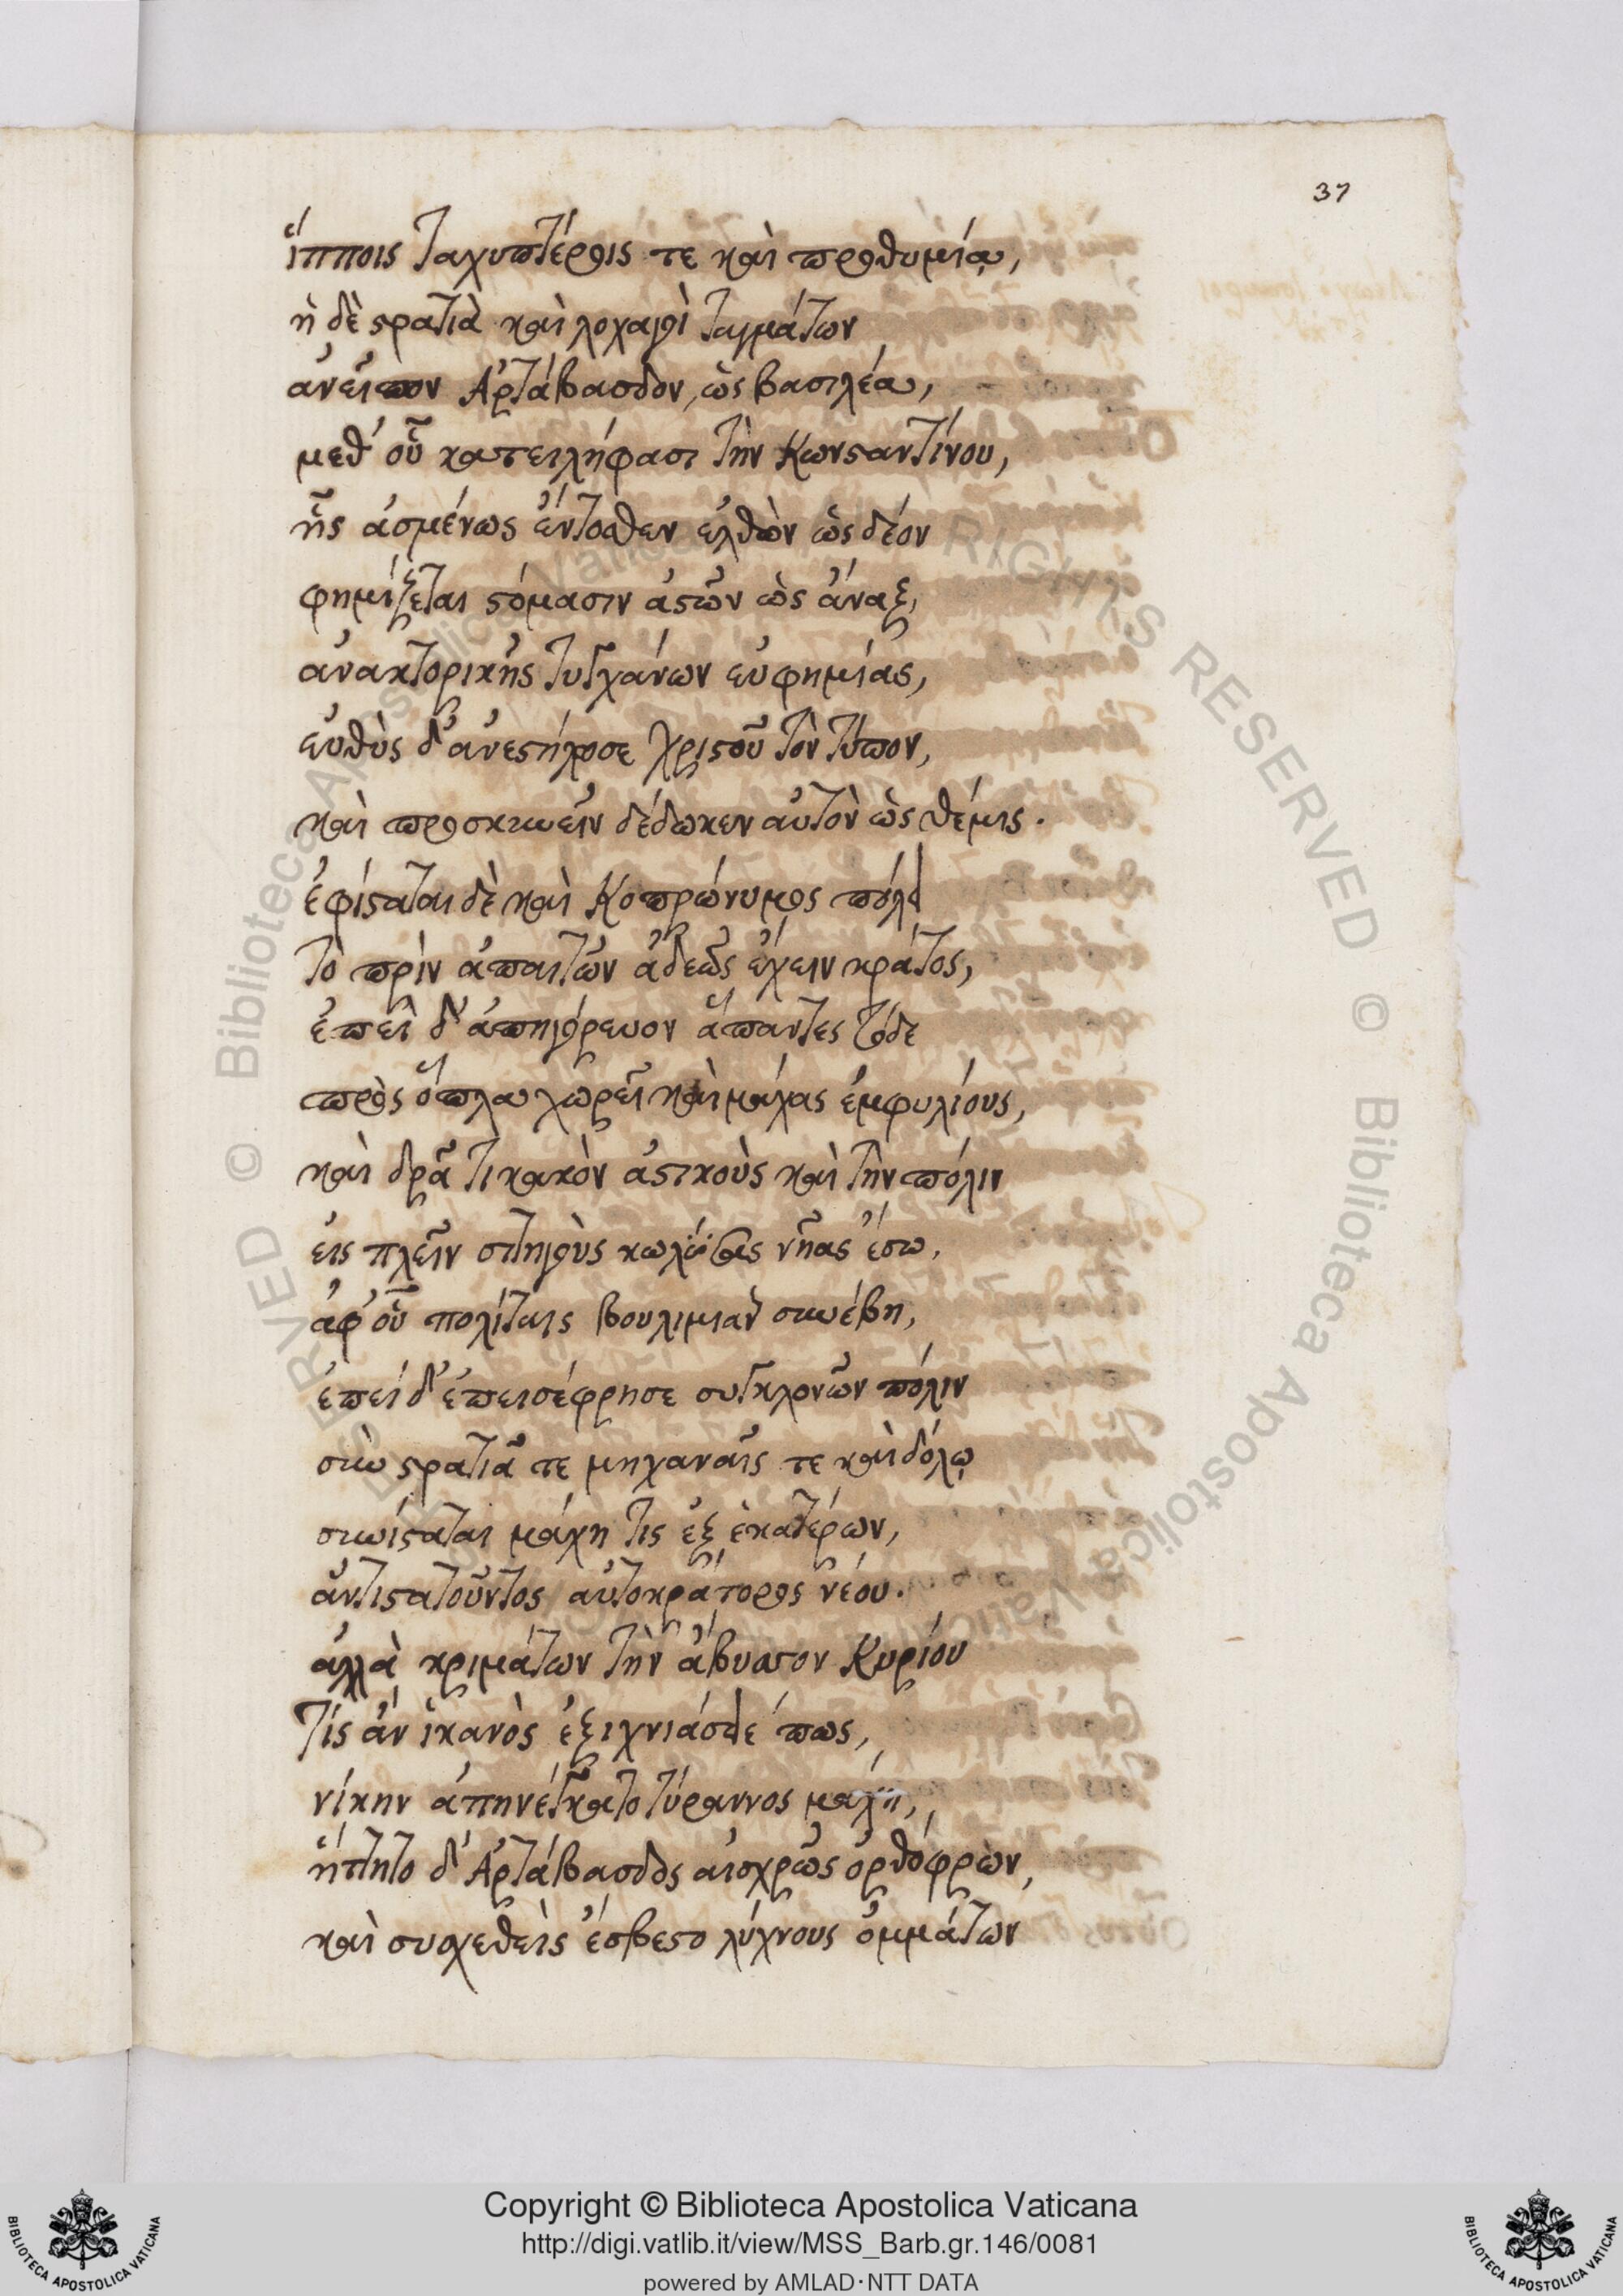 37
ἵπποις ταχυπτέροις τε καὶ προθυμίᾳ,
ἡ δὲ στρατιὰ καὶ λοχαγοὶ ταγμάτων
ἀνεῖπον Ἀρτάβασδον, ὡς βασιλέα,
μεθ' οὗ κατειλήφασι τὴν Κωνσταντίνου,
ἧς ἀσμένως ἔντοσθεν ἐλθὼν ὡς δέον
φημίζεται στόμασιν ἀστῶν ὡς ἄναξ,
ἀνακτορικῆς τυγχάνων εὐφημίας,
εὐθὺς δ' ἀνεστήλωσε Χριστοῦ τὸν τύπον,
καὶ προσκυνεῖν δέδωκεν αὐτὸν ὡς θέμις.
ἐφίσταται δὲ καὶ Κοπρώνυμος πόλει
τὸ πρὶν ἀπαιτῶν ἀδεῶς ἔχειν κράτος,
ἐπεὶ δ' ἀπηγόρευον ἅπαντες τόδε
πρὸς ὅπλα χωρεῖ καὶ μάχας ἐμφυλίους,
καὶ δρᾷ τι κακὸν ἀστικοὺς καὶ τὴν πόλιν
εἰς πλεῖν σιτηγοὺς κωλύσας νῆας ἔσω,
ἀφ' οὗ πολίταις βουλιμιᾶν συνέβη,
ἐπεὶ δ' ἐπεισέφρησε συγκλονῶν πόλιν
σὺν στρατιᾷ τε μηχαναῖς τε καὶ δόλῳ
συνίσταται μάχη τις ἐξ ἑκατέρων,
ἀντιστατοῦντος αὐτοκράτορος νέου.
ἀλλὰ κριμάτων τὴν ἄβυσσον Κυρίου
τίς ἂν ἱκανὸς ἐξιχνιάσειέ πως,
νίκην ἀπηνέγκατο τύραννος μάχῃ,
ἥττητο δ' Ἀρτάβασδος αἰσχρῶς ὀρθόφρων,
καὶ συσχεθεὶς ἔσβεστο λύχνους ὀμμάτων
Copyright © Biblioteca Apostolica Vaticana
http://digi.vatlib.it/view/MSS_Barb.gr.146/0081
powered by AMLAD·NTT DATA